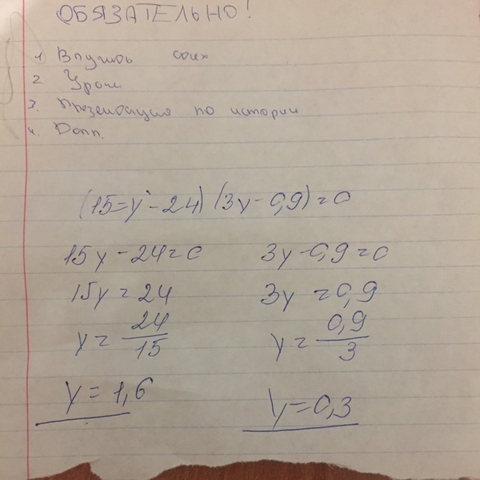 ОБЯЗАТЕЛЬНО!
1
2 Уроки
3. Презентация по истории
4. Допп.
(15=y-24) (3y-0,9)=0
15y-24=0 3y-0,9=0
15y=24 3y=0,9
y=24/15 y=0,9/3
y=1,6 y=0,3